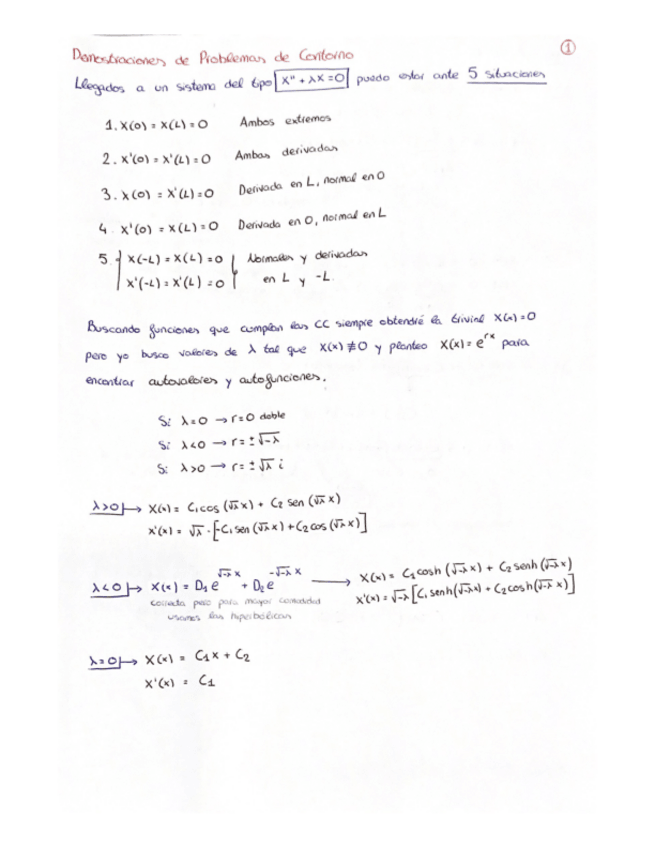 ①
Demostraciones de Problemas de Contorno
Llegados a un sistema del tipo X'' + λX = 0 puedo estar ante 5 situaciones
1. X(0) = X(L) = 0 Ambos extremos
2. X'(0) = X'(L) = 0 Ambas derivadas
3. X(0) = X'(L) = 0 Derivada en L, normal en 0
4. X'(0) = X(L) = 0 Derivada en 0, normal en L
5 { X(-L) = X(L) = 0 Normales y derivadas
X'(-L) = X'(L) = 0 } en L y -L.
Buscando funciones que cumplan las CC siempre obtendré la trivial X(x) = 0
pero yo busco valores de λ tal que X(x) ≢ 0 y planteo X(x) = e^{rx} para
encontrar autovalores y autofunciones.
Si λ = 0 → r = 0 doble
Si λ < 0 → r = ±√-λ
Si λ > 0 → r = ±√λ i
λ > 0 → X(x) = C₁cos (√λ x) + C₂ sen (√λ x)
X'(x) = √λ · [-C₁ sen (√λ x) + C₂ cos (√λ x)]
λ < 0 → X(x) = D₁ e^{√-λ x} + D₂ e^{-√-λ x} → X(x) = C₁ cosh (√-λ x) + C₂ senh (√-λ x)
X'(x) = √-λ [C₁ senh (√-λ x) + C₂ cosh (√-λ x)]
correcta pero para mayor comodidad
usamos las hiperbólicas
λ = 0 → X(x) = C₁x + C₂
X'(x) = C₁